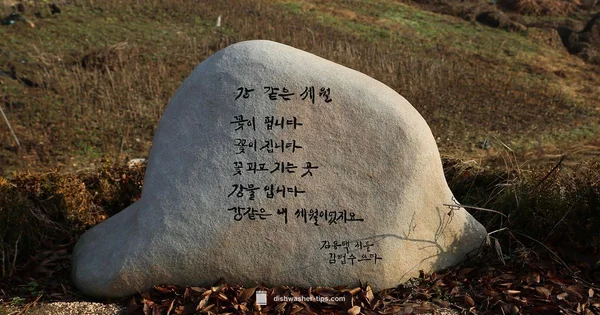 강 같은 세월
꽃이 핍니다
꽃이 집니다
꽃 피고 지는 곳
강물 입니다
강같은 내 세월이었지요
김용택 시를
김범수 쓰다
dishwasher-tips.com